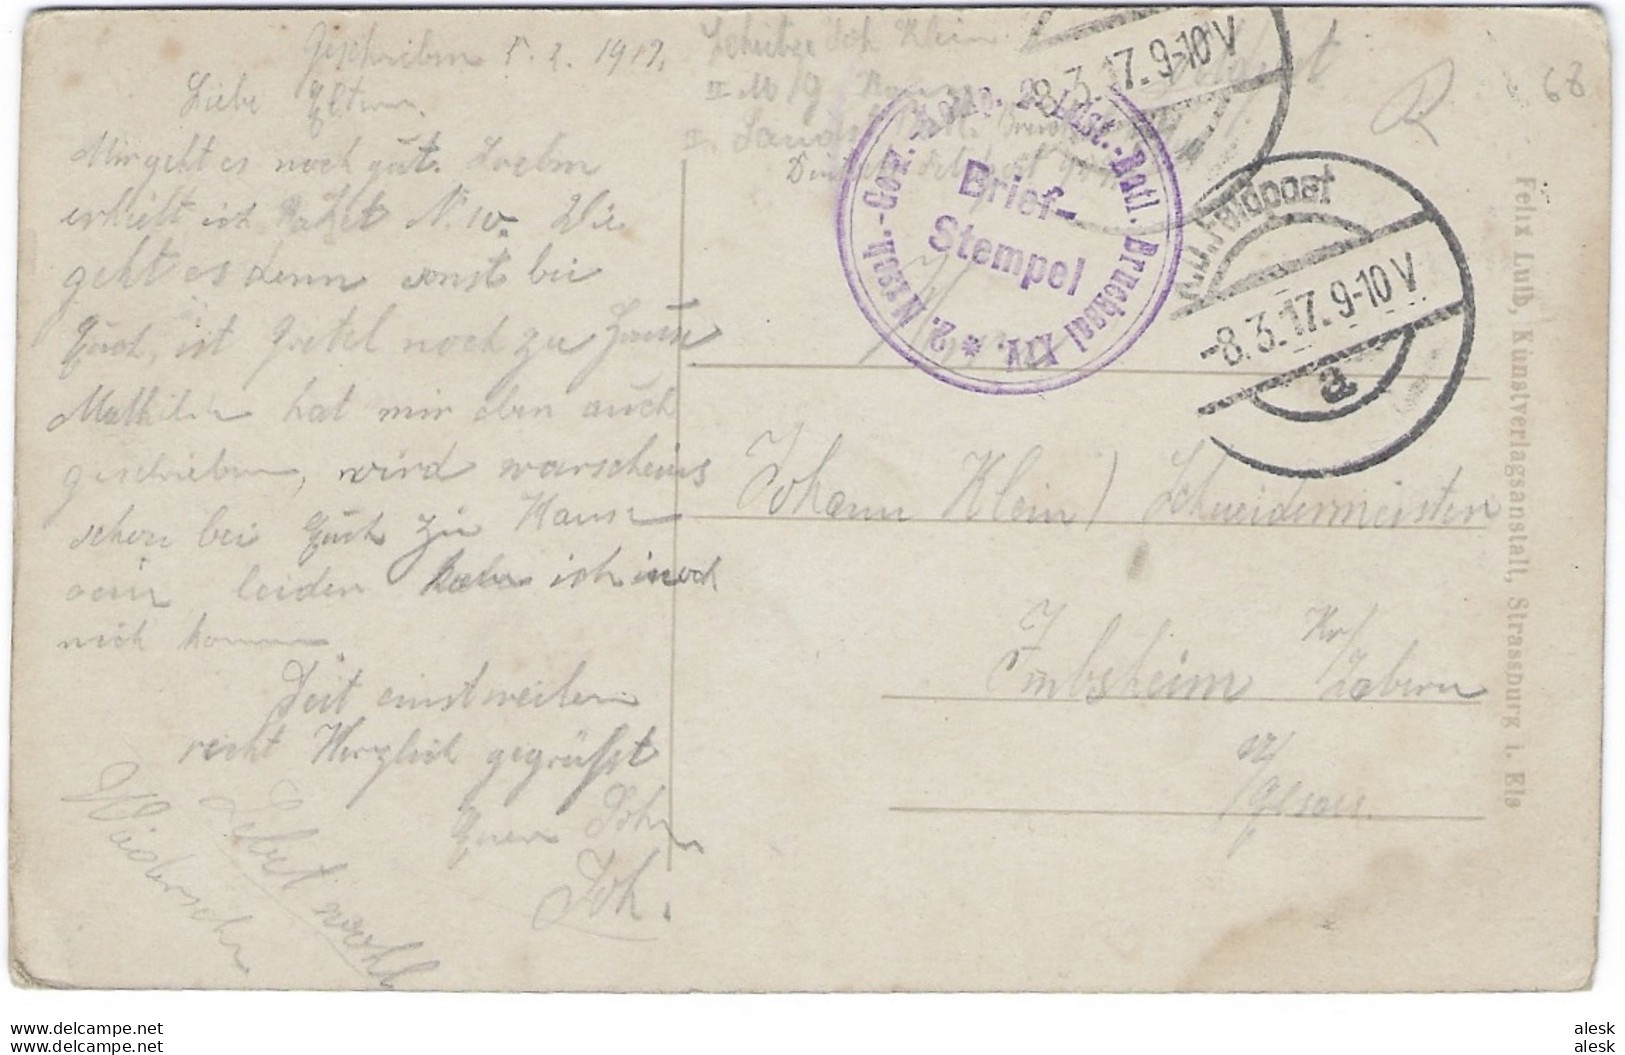 Geschrieben 5. 2. 1917.
Liebe Eltern
Mir geht es noch gut. Soeben
erhielt ich Paket N. 10. Wie
geht es denn sonst bei
Euch, ist Gretel noch zu Hause
Mathilde hat mir eben auch
geschrieben, wird warscheins
schon bei Euch zu Hause
sein leider kann ich noch
nich kommen.
Seit einstweilen
recht Herzlich gegrüsst
Euer Sohn
Joh.
Lebet wohl
Wiedersehn
Schütze Joh Klein
II M/G
Landst. Batl.
Deutsche Feldpost
2. Masch.-Gew.-Komp. Ldst.-Batl. Bruchsal XIV. *
Brief-
Stempel
-8.3.17.9-10V
K.D.Feldpost
-8.3.17.9-10V
a
R
68
Johann Klein, Schneidermeister
Imbsheim Kr/ Zabern
i/ Elsass
Felix Luib, Kunstverlagsanstalt, Strassburg i. Els
alesk
delcampe.net
alesk
delcampe.net